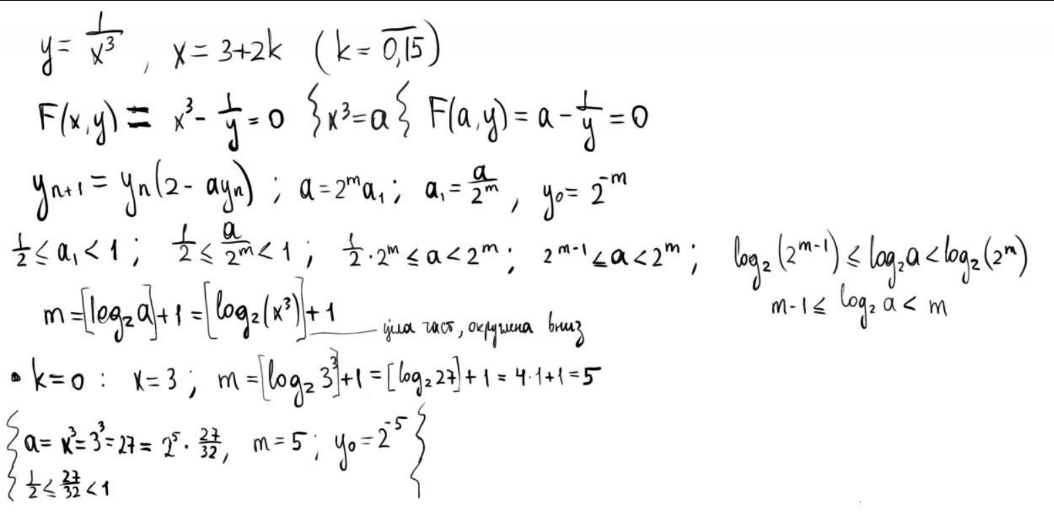 y = 1/x³ , x = 3+2k (k = 0,15)
F(x,y) = x³ - 1/y = 0 {x³=a} F(a,y) = a - 1/y = 0
yₙ₊₁ = yₙ(2 - ayₙ) ; a = 2ᵐa₁ ; a₁ = a/2ᵐ , y₀ = 2⁻ᵐ
1/2 ≤ a₁ < 1 ; 1/2 ≤ a/2ᵐ < 1 ; 1/2 · 2ᵐ ≤ a < 2ᵐ ; 2ᵐ⁻¹ ≤ a < 2ᵐ ; log₂(2ᵐ⁻¹) ≤ log₂a < log₂(2ᵐ)
m-1 ≤ log₂ a < m
m = [log₂ a] + 1 = [log₂(x³)] + 1
ціла част, округлена вниз
• k=0 : x=3 ; m = [log₂ 3³] + 1 = [log₂ 27] + 1 = 4·1+1 = 5
{a = x³ = 3³ = 27 = 2⁵ · 27/32 , m = 5 ; y₀ = 2⁻⁵}
1/2 ≤ 27/32 < 1